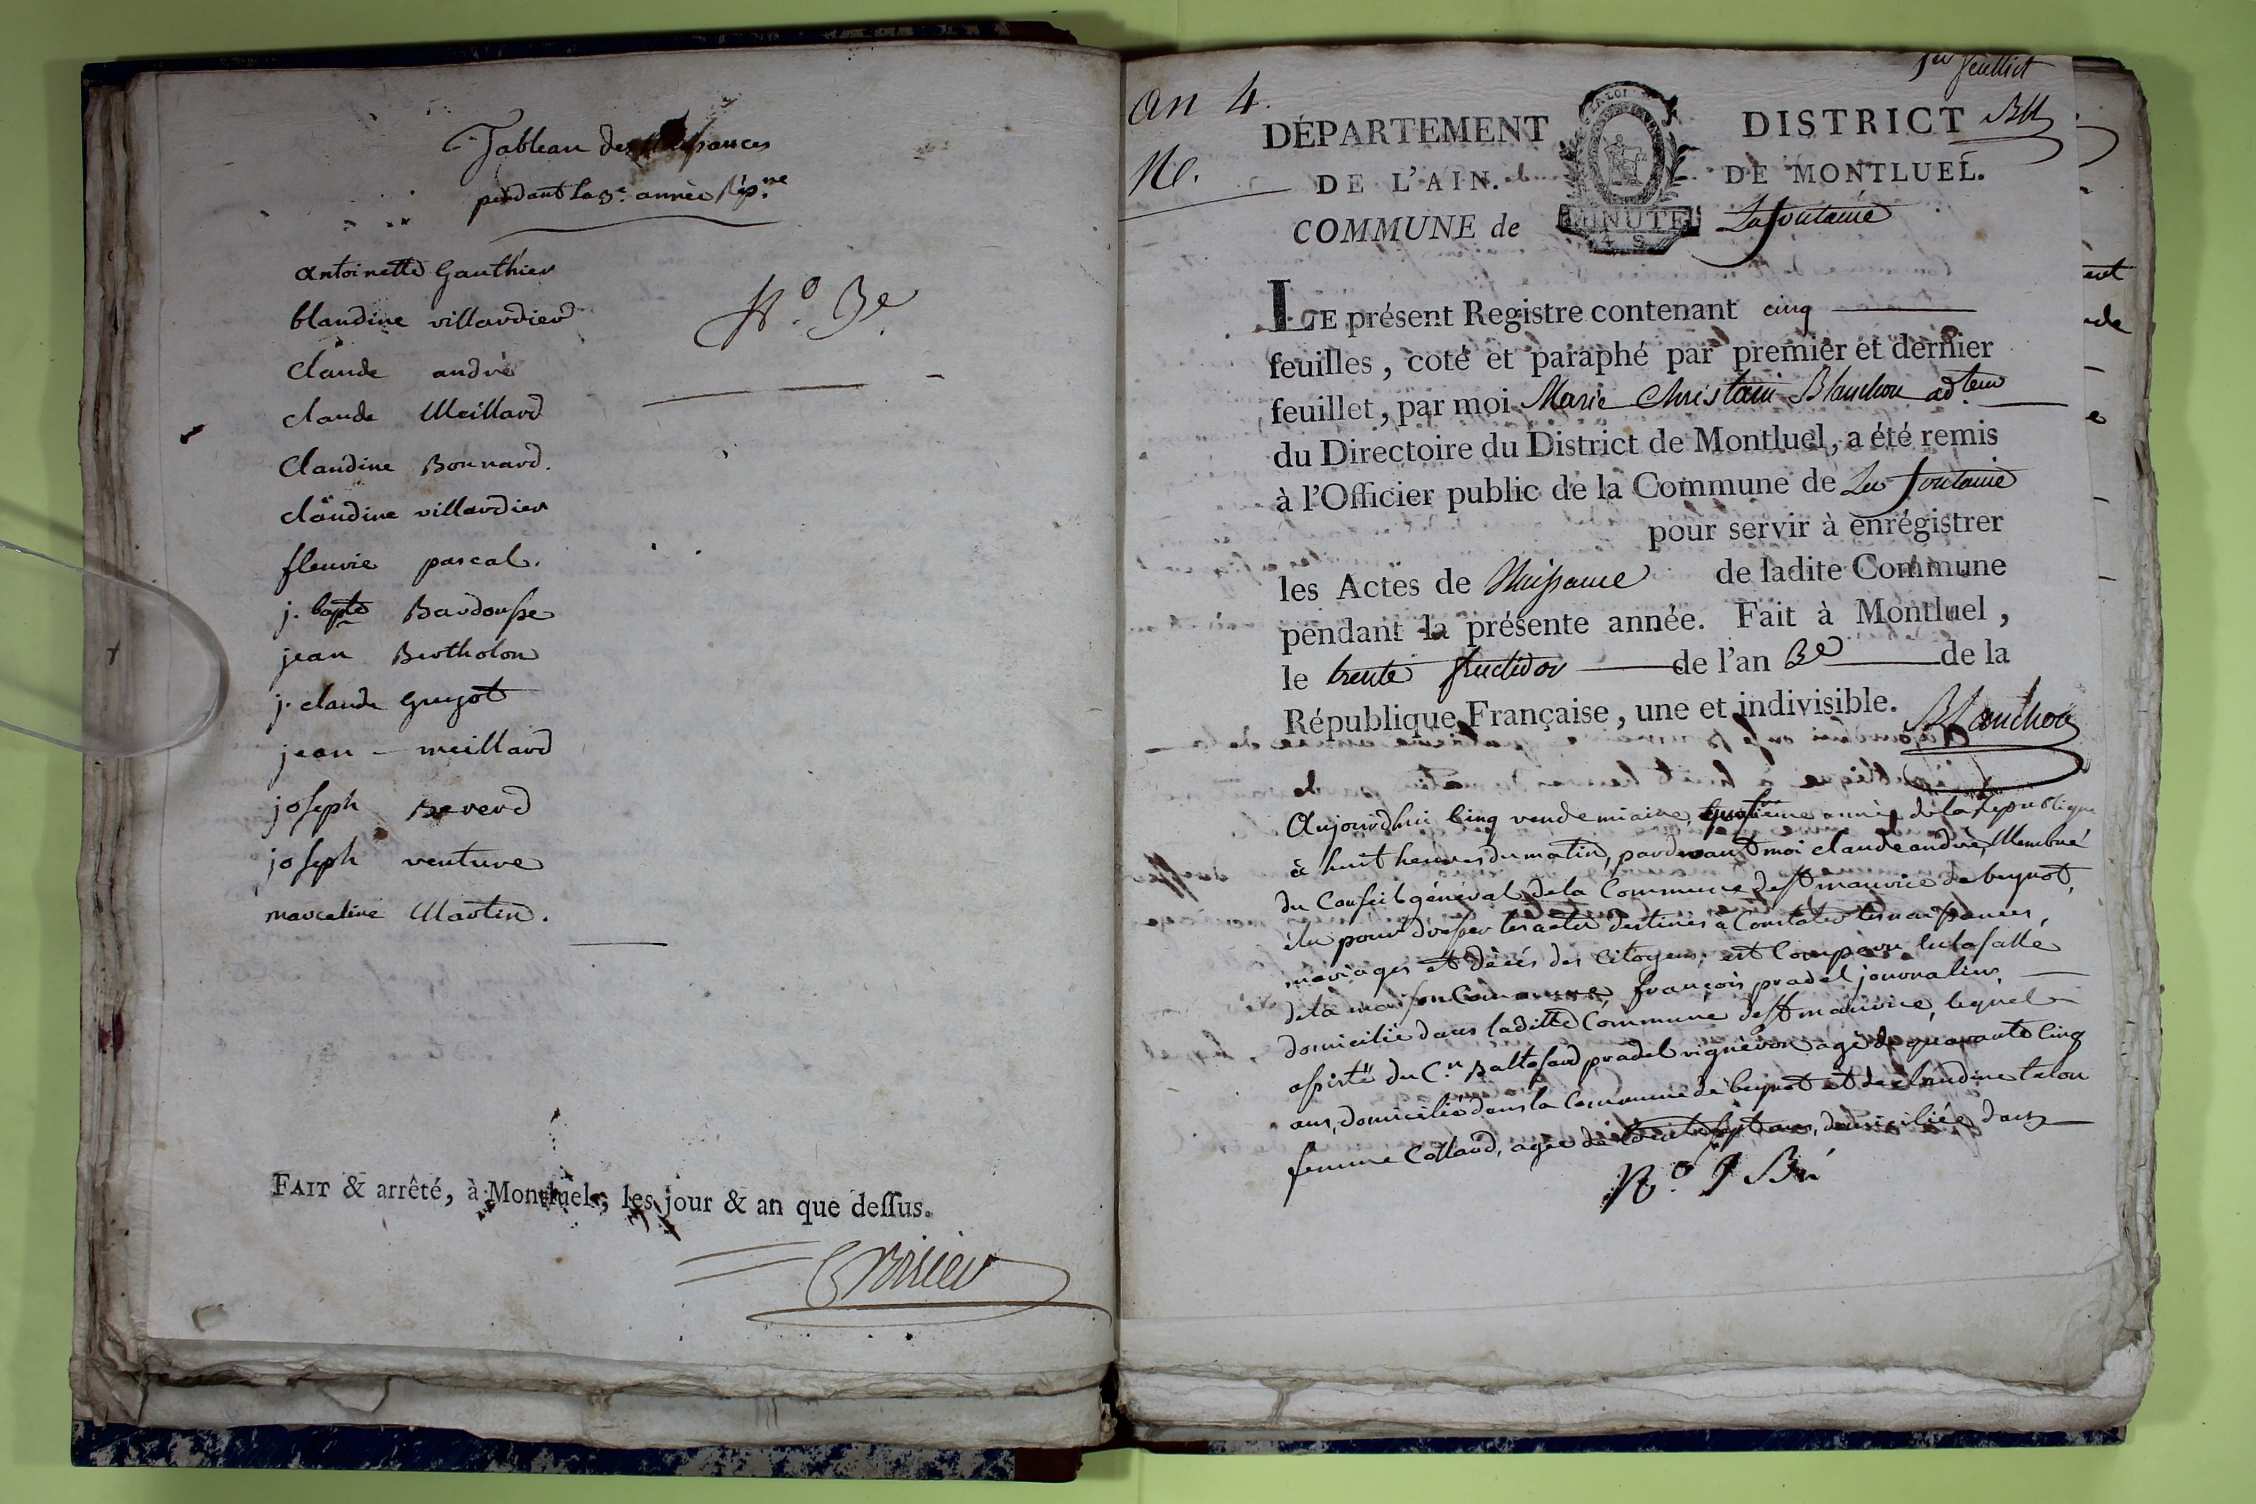 Tableau des Naissances
pendant la 3e. année Rép.ne
antoinette Gauthier
blandine villardier
N.o 3e
claude andré
claude Meillard
Claudine Bonnard.
claudine villardier
fleurie pascal.
j. bapte Bardousse
jean Bertholon
j. claude Guyot
jean - meillard
joseph Reverd
joseph venture
marceline Martin.
FAIT & arrêté, à Montluel, les jour & an que dessus.
an 4.
N.
feuillet
DÉPARTEMENT
DE L'AIN.
COMMUNE de
LA LOI
MINUTE
4 S
DISTRICT
DE MONTLUEL.
La fontaine
LE présent Registre contenant cinq
feuilles, coté et paraphé par premier et dernier
feuillet, par moi Marie Christain Blanchon ad.teur
du Directoire du District de Montluel, a été remis
à l'Officier public de la Commune de La fontaine
pour servir à enrégistrer
les Actes de Naissance de ladite Commune
pendant la présente année. Fait à Montluel,
le trente fructidor de l'an 3e de la
République Française, une et indivisible.
Blanchon
Aujourdhui Cinq vendemiaire, quatrieme année de la Republique
à huit heures du matin, pardevant moi claude andré, Membre
du Conseil général de la Commune de st maurice de beynost,
élu pour dresser les actes destinés à Constater les naissances,
mariages et décés des Citoyens, est Comparu en la salle
de la maison Commune, françois pradel journalier
domicilié dans laditte Commune de st maurice, lequel
assisté du C.n Baltasard pradel vigneron agé de quarante Cinq
ans, domicilié dans la Commune de beynost et de claudine talon
femme Colland, agée de trente sept ans, domiciliée dans